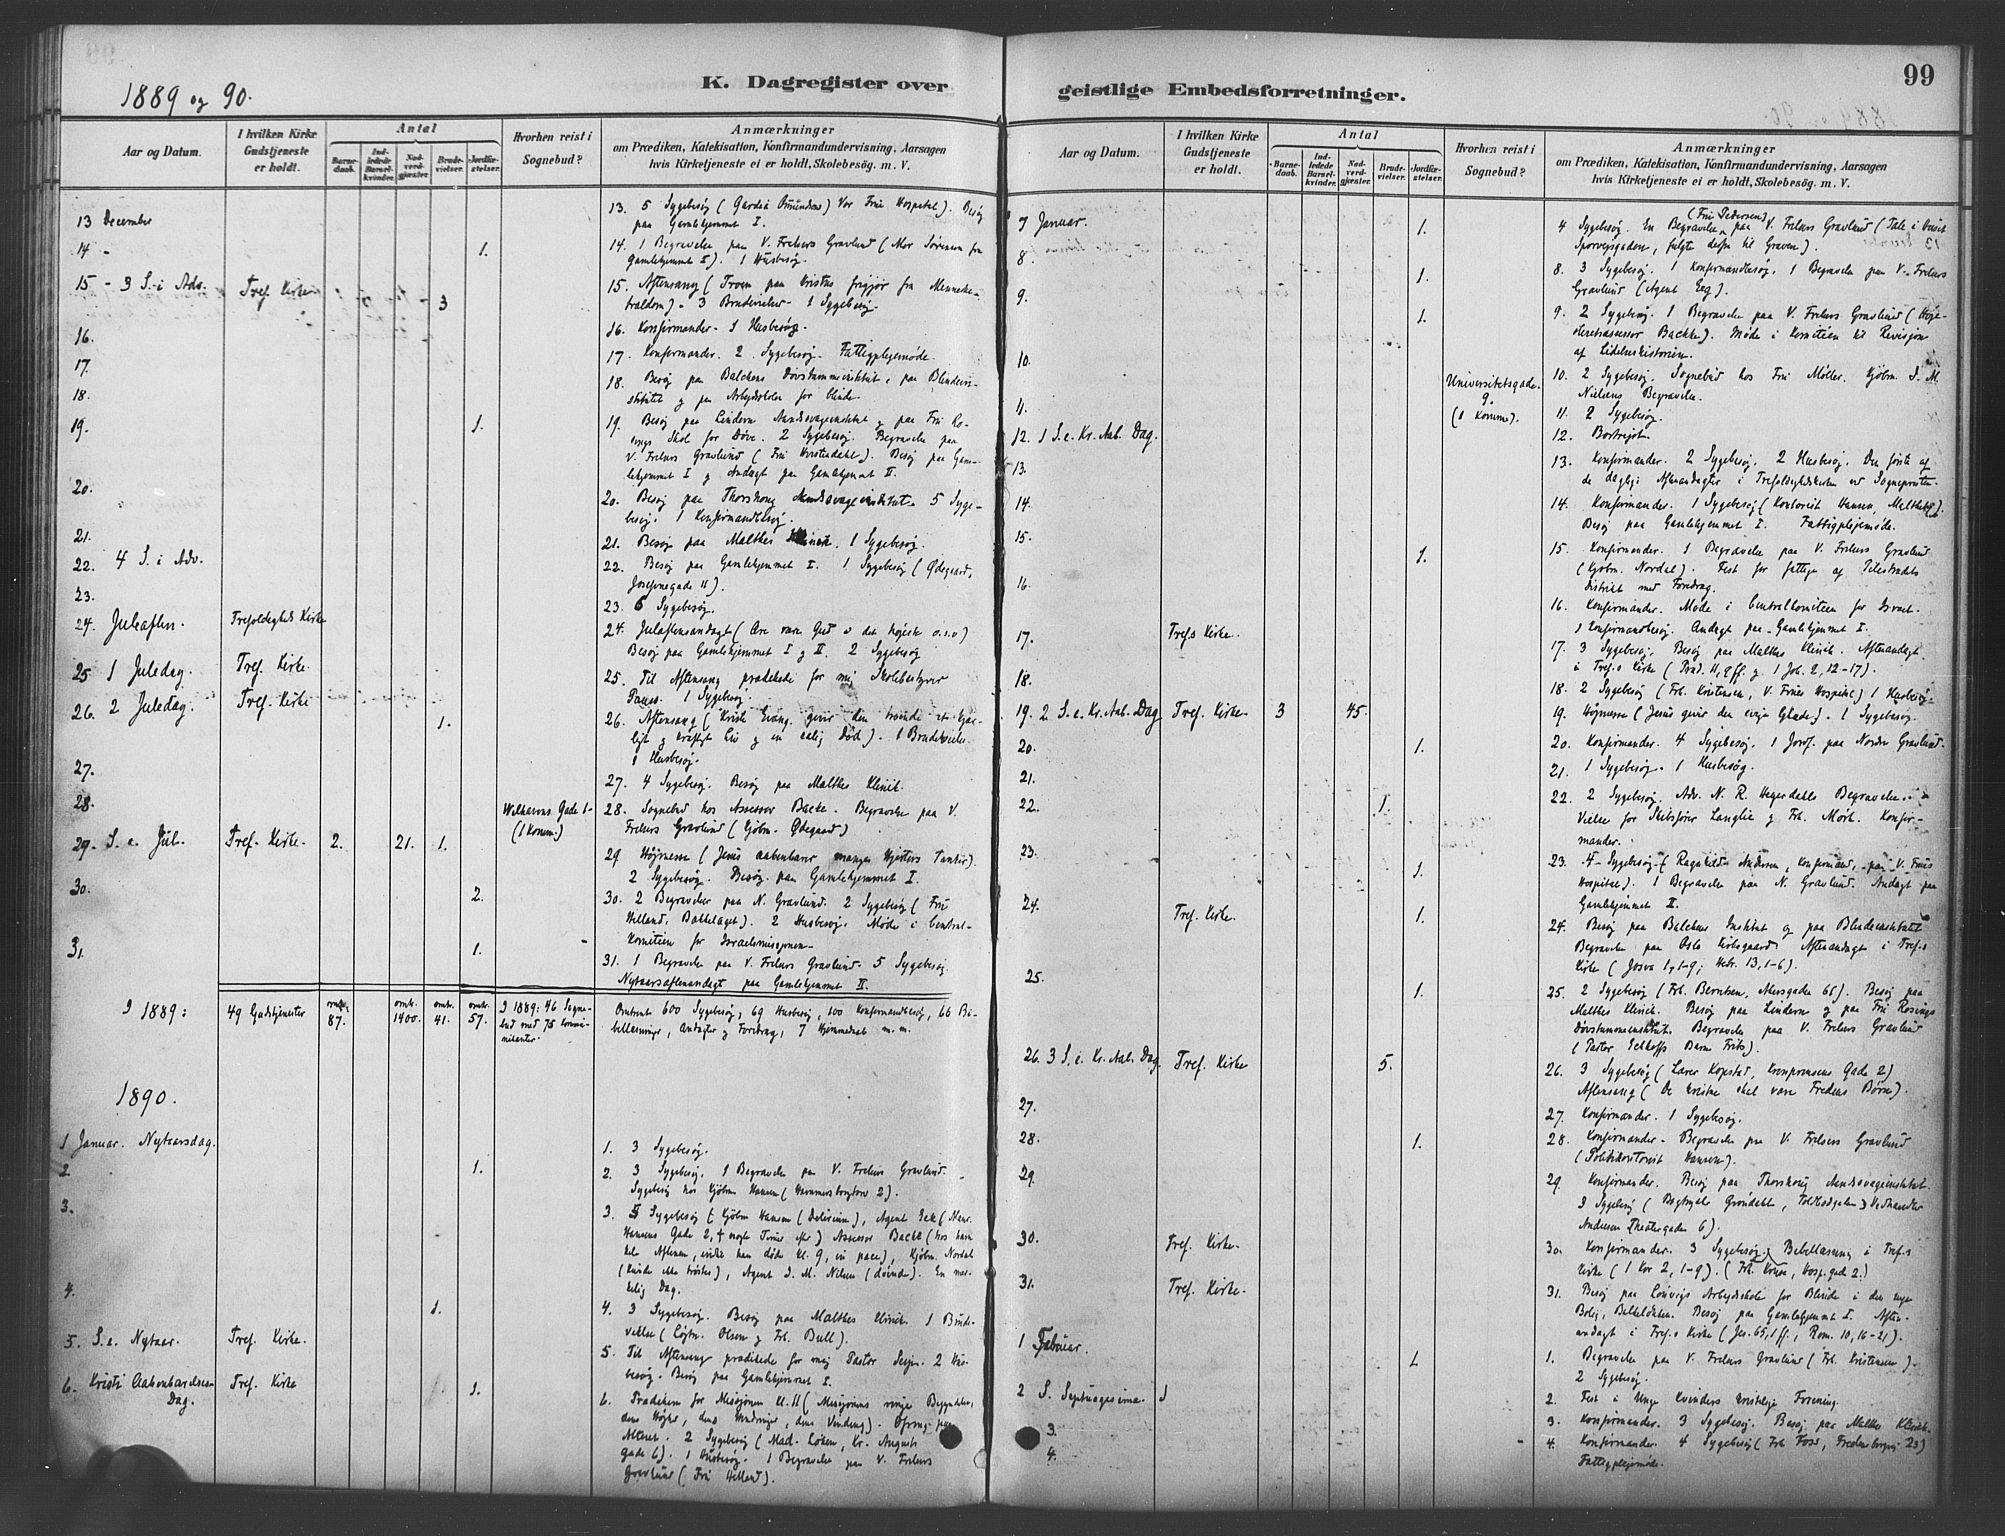 1889 og 90.
K. Dagregister over
Aar og Datum.
I hvilken Kirke Gudstjeneste er holdt.
Antal
Barnedaab.
Indledede Barselkvinder.
Nadverdgjæster.
Brudevielser.
Jordfæstelser.
Hvorhen reist i Sognebud?
Anmærkninger
om Prædiken, Katekisation, Konfirmandundervisning, Aarsagen
hvis Kirketjeneste ei er holdt, Skolebesög. m. V.
13 December
13. 5 Sygebesøg ( Vor Frue Hospital). Besøg
paa Gamlehjemmet I.
14 - 1.
14. 1 Begravelse paa V. Frelsers Gravlund (Mor Sørensen fra
Gamlehjemmet I). 1 Husbesøg.
15 - 3 S. i Adv. Tref. Kirke 3
15. Aftensang (Troen paa Kristus frigjør fra Menneske-
traldom). 3 Brudevielser. 1 Sygebesøg.
16.
16. Konfirmander. 1 Husbesøg.
17.
17. Konfirmander. 2 Sygebesøg. Fattigplejemøde.
18.
18. Besøg paa Balchens Døvstummeinstitut, paa Blindein-
stitutet og paa for blinde.
19. 1.
19. Besøg paa Lindern Aandssvageinstitut og paa Frk Ro-
sings Skole for Døve. 2 Sygebesøg. Begravelse paa
V. Frelsers Gravlund (Fru ). Besøg paa Gam-
lehjemmet I og Andagt paa Gamlehjemmet II.
20.
20. Besøg paa Thorshaug Aandssvageinstitut. 5 Syge-
besøg. 1 Konfirmandbesøg.
21.
21. Besøg paa Malthes Klinik. 1 Sygebesøg.
22. 4 S. i Adv.
22. Besøg paa Gamlehjemmet I. 1 Sygebesøg (Ødegaard,
Josefinegade 11).
23.
23. 6 Sygebesøg.
24. Juleaften. Trefoldigheds Kirke
24. Juleaftensandagt (Ære være Gud i det højeste o.s.v)
Besøg paa Gamlehjemmet I og II. 2 Sygebesøg
25 1 Juledag. Tref. Kirke.
25. Til Aftensang prædikede for mig Skolebestyrer
1 Sygebesøg.
26. 2 Juledag. Tref. Kirke 1.
26. Aftensang (Kristi Evang. giver den troende et
og kraftigt Liv og en salig Død). 1 Brudevielse.
1 Husbesøg.
27.
27. 4 Sygebesøg. Besøg paa Malthes Klinik.
28. Welhavens Gade 1. (1 Komm.)
28. Sognebud hos Assessor Backe. Begravelse paa V.
Frelsers Gravlund (Kjøbm. Ødegaard)
29. S. e. Jul. Tref. Kirke. 2. 21. 1.
29 Højmesse (Jesus aabenbarer manges Hjerters Tanker).
2 Sygebesøg. Besøg paa Gamlehjemmet I.
30. 2.
30. 2 Begravelser paa N. Gravlund. 2 Sygebesøg (Fru
Helland, Bakkelaget). 2 Husbesøg. Møde i Central-
komiteen for Israelsmissionen.
31. 1.
31. 1 Begravelse paa V. Frelsers Gravlund. 5 Sygebesøg.
Nytaarsaftenandagt paa Gamlehjemmet II.
I 1889: 49 Gudstjenester omtr. 87. omtr. 1400. omtr. 41. omtr. 57. I 1889: 46 Sogne-
bud med 75 kommu-
nikanter.
Omtrent 600 Sygebesøg, 69 Husbesøg, 100 Konfirmandbesøg, 66 Bi-
bellæsninger, Andagter og Foredrag, 7 Hjemmedaab m. m.
1890.
1 Januar. Nytaarsdag.
1. 3 Sygebesøg.
2. 1.
2. 3 Sygebesøg. 1 Begravelse paa V. Frelsers Gravlund.
Sygebesøg hos Kjøbm Hansen (Hammersborgtorv 2).
3.
3. 5 Sygebesøg (Kjøbm Hansen (Delirium), Agent
Gade 2, † nogle Timer efter) Assessor Backe (hos ham
Aftenen, inden han døde Kl. 9, in pace), Kjøbm. Nordal
(kunde ikke trøstes), Agent J. M. Nilsen (døende). En mær-
kelig Dag.
4. 1.
4. 3 Sygebesøg. Besøg paa Malthes Klinik. 1 Brude-
vielse (Løjtn. Olsen og Frk. Bull).
5. S. e. Nytaar. Tref. Kirke.
5. Til Aftensang prædikede for mig Pastor 2 Hus-
besøg. Besøg paa Gamlehjemmet I.
6. Kristi Aabenbarelses- Dag. Tref. Kirke 1.
6. Prædiken for Missionen Kl. 11 (Missionens ringe Begyndelse,
dens Højhed, dens Modgang, dens Vinding). Ofring paa
Alteret. 2 Sygebesøg (Mad. Løken, Kr. Augusts
gade 6). 1 Husbesøg. 1 Begravelse paa V. Frelsers
Gravlund (Fru Helland).
99
geistlige Embedsforretninger.
Aar og Datum.
I hvilken Kirke Gudstjeneste er holdt.
Antal
Barnedaab.
Indledede Barselkvinder.
Nadverdgjæster.
Brudevielser.
Jordfæstelser.
Hvorhen reist i Sognebud?
Anmærkninger
om Prædiken, Katekisation, Konfirmandundervisning, Aarsagen
hvis Kirketjeneste ei er holdt, Skolebesög. m. V.
7 Januar. 1.
4 Sygebesøg. En Begravelse (Fru Pedersen) paa V. Frelsers Gravlund (Tale i Huset
Sporvejsgaden, fulgte derfra til Graven).
8. 1.
8. 3 Sygebesøg. 1 Konfirmandbesøg. 1 Begravelse paa V. Frelsers
Gravlund (Agent ).
9. 1.
9. 2 Sygebesøg. 1 Begravelse paa V. Frelsers Gravlund (Høje-
steretsassessor Backe). Møde i Komiteen til Revision
af Lidelseshistorien.
10. Universitetsgade. 9. (1 Komm.).
10. 2 Sygebesøg. Sognebud hos Fru Møller. Kjøbm. J. M.
Nielsens Begravelse.
11.
11. 2 Sygebesøg.
12. 1 S. e. Kr. Aab. Dag.
12. Bortrejst.
13.
13. Konfirmander. 2 Sygebesøg. 2 Husbesøg. Den første af
de daglige Aftenandagter i Trefoldighedskirken ved Sognepresten.
14.
14. Konfirmander. 1 Sygebesøg (Kontorist Hansen, ).
Besøg paa Gamlehjemmet I. Fattigplejemøde.
15. 1.
15. Konfirmander. 1 Begravelse paa V. Frelsers Gravlund
(Kjøbm. Nordal). Fest for fattige af Pilestrædets
Distrikt med Foredrag.
16.
16. Konfirmander. Møde i Centralkomiteen for Israel.
1 Konfirmandbesøg. Andagt paa Gamlehjemmet I.
17. Tref.s Kirke.
17. 3 Sygebesøg. Besøg paa Malthes Klinik. Aftenandagt
i Tref.s Kirke (Præd. 11, 9 ff. og 1 Joh. 2, 12-17).
18.
18. 2 Sygebesøg (Frk. Kristensen, V. Frues Hospital) 1 Husbesøg.
19. 2 S. e. Kr. Aab. Dag Tref. Kirke. 3 45.
19. Højmesse (Jesus giver den evige Glæde). 1 Sygebesøg.
20. 1.
20. Konfirmander. 4 Sygebesøg. 1 Jordf. paa Nordre Gravlund.
21.
21. 1 Sygebesøg. 1 Husbesøg.
22. 1.
22. 2 Sygebesøg. Adv. N. R. Hegerdahls Begravelse.
Vielse for Skibsfører Langlie og Frk. Mørk. Konfir-
mander.
23. 1.
23. 4 Sygebesøg (Ragnhild Andersen, Konfirmand, paa V. Frues
Hospital). 1 Begravelse paa N. Gravlund. Andagt paa
Gamlehjemmet II.
24. Tref. Kirke. 1.
24. Besøg paa Balchens Institut og paa Blindeinstitutet
Begravelse paa Oslo Kirkegaard. Aftenandagt i Tref.s
Kirke (Josva 1, 1-9; Hebr. 13, 1-6).
25. 1.
25. 2 Sygebesøg (Frk. Berntsen, 66). Besøg paa
Malthes Klinik. Besøg paa Lindern og paa Frk Rosings
Døvstummeinstitut. Begravelse paa V. Frelsers Gravlund
(Pastor Barn Frits).
26. 3 S. e. Kr. Aab. Dag. Tref. Kirke 5.
26. 3 Sygebesøg (Lærer Kopstad, Kronprinsens Gade 2)
Aftensang (De kristne skal være Fredens Børn).
27.
27. Konfirmander. 1 Sygebesøg.
28. 1.
28. Konfirmander. Begravelse paa V. Frelsers Gravlund
(Politikontorist Hansen).
29.
29. Konfirmander. Besøg paa Thorshaug Aandssvageinstitut.
3 Sygebesøg (Bogtrykker Grøndahl, Toldbodgaden) Vedhandler
Andersen Theatergaden 6).
30. Tref. Kirke.
30. Konfirmander. 3 Sygebesøg. Bibellæsning i Tref.s
Kirke (1 Kor 2, 1-9). (Frk. Kruse, Hosp.gade 2.)
31. Tref. Kirke.
31. Besøg paa Arbejdsskole for Blinde i den nye
Bolig, Besøg paa Gamlehjemmet I. Aften-
andagt i Tref.s Kirke (Jes. 65, 1 ff., Rom. 10, 16-21).
1 Februar. 1
1. Begravelse paa V. Frelsers Gravlund (Frk. Kristensen).
2 Sygebesøg.
2 S. Septuagesima.
2. Fest i Unge Kvinders kristelige Forening.
3.
3. Konfirmander. 3 Sygebesøg. Besøg paa Malthes Klinik.
4.
4. Konfirmander. 4 Sygebesøg (Frk Foss, 23)
Fattigplejemøde.